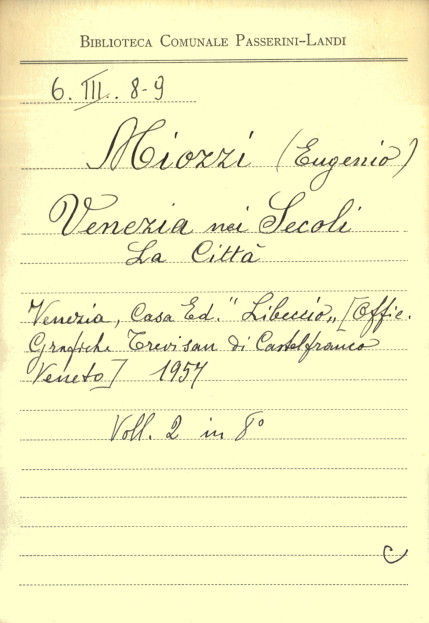 BIBLIOTECA COMUNALE PASSERINI-LANDI
6. III. 8-9
Miozzi (Eugenio)
Venezia nei Secoli
La Città
Venezia, Casa Ed. "Libeccio„ [Offic.
Grafiche Trevisan di Castelfranco
Veneto] 1957
Voll. 2 in 8°
C